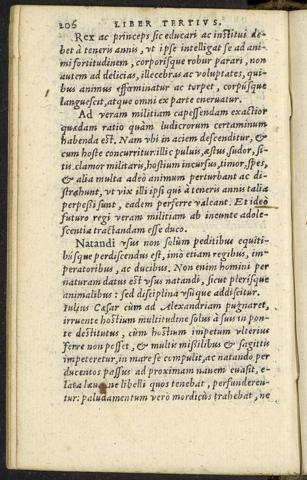 206 LIBER TERTIVS.
Rex ac princeps sic educari ac institui de-
bet à teneris annis, vt ipse intelligat se ad ani-
mi fortitudinem, corporisque robur parari, non
autem ad delicias, illecebras ac voluptates, qui-
bus animus effœminatur ac torpet, corpúsque
languescit, atque omni ex parte eneruatur.
Ad veram militiam capessendam exactior
quædam ratio quàm ludicrorum certaminum
habenda est. Nam vbi in aciem descenditur, &
cum hoste concurritur: illic puluis, æstus, sudor, si-
tis, clamor militaris, hostium incursus, timor, spes,
& alia multa adeò animum perturbant ac di-
strahunt, vt vix illi ipsi qui à teneris annis talia
perpeßi sunt, eadem perferre valeant. Et ideò
futuro regi veram militiam ab ineunte adole-
scentia tractandam esse duco.
Natandi vsus non solùm peditibus equiti-
búsque perdiscendus est, imò etiam regibus, im-
peratoribus, ac ducibus. Non enim homini per
naturam datus est vsus natandi, sicut plerisque
animalibus: sed disciplina vsúque addiscitur.
Iulius Cæsar cùm ad Alexandriam pugnaret,
irruente hostium multitudine solus à suis in pon-
te destitutus, cùm hostium impetum vlterius
ferre non posset, & multis mißilibus & sagittis
impeteretur, in mare se compulit, ac natando per
ducentos passus ad proximam nauem euasit, e-
lata læua, ne libelli quos tenebat, perfunderen-
tur: paludamentum verò mordicùs trahebat, ne